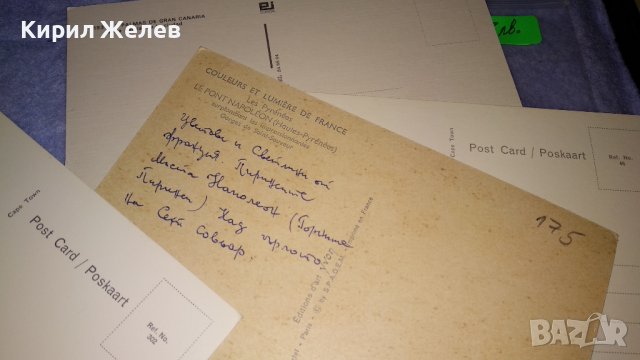 Кирил Желев
PALMAS DE GRAN CANARIA
лв.
COULEURS ET LUMIÈRE DE FRANCE
Les Pyrénées
LE PONT NAPOLÉON (Hautes-Pyrénées)
surplombant les impressionnantes
Gorges de Saint-Sauveur
Цветове и Светлини от
франция. Пиринеите
Моста Наполеон (Горните
Пиринеи) Над гърлото
на Сент совьор.
175
Editions d'art YVON
Paris - © by S.P.A.D.E.M.
Imprimé en France
Cape Town
Post Card / Poskaart
Ref. No.
46
Cape Town
Post Card / Poskaart
Ref. No.
302
bazar